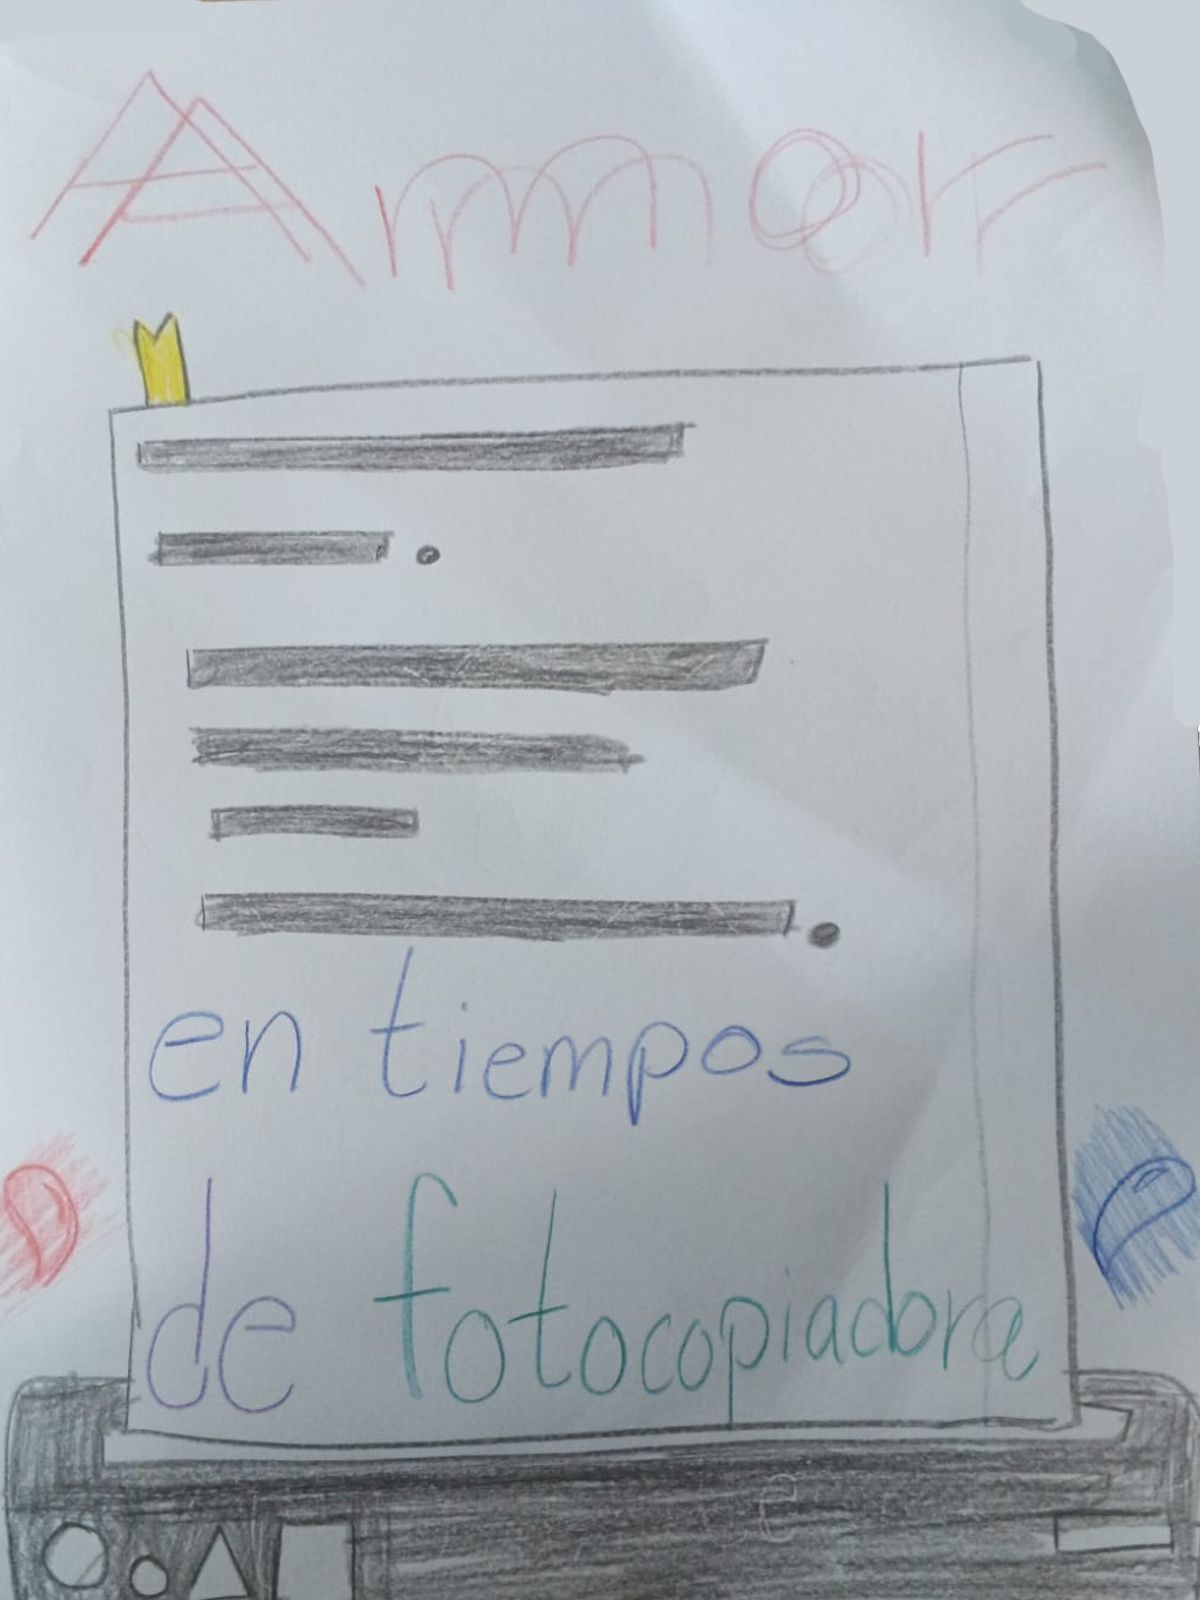 Amor
en tiempos
de fotocopiadora